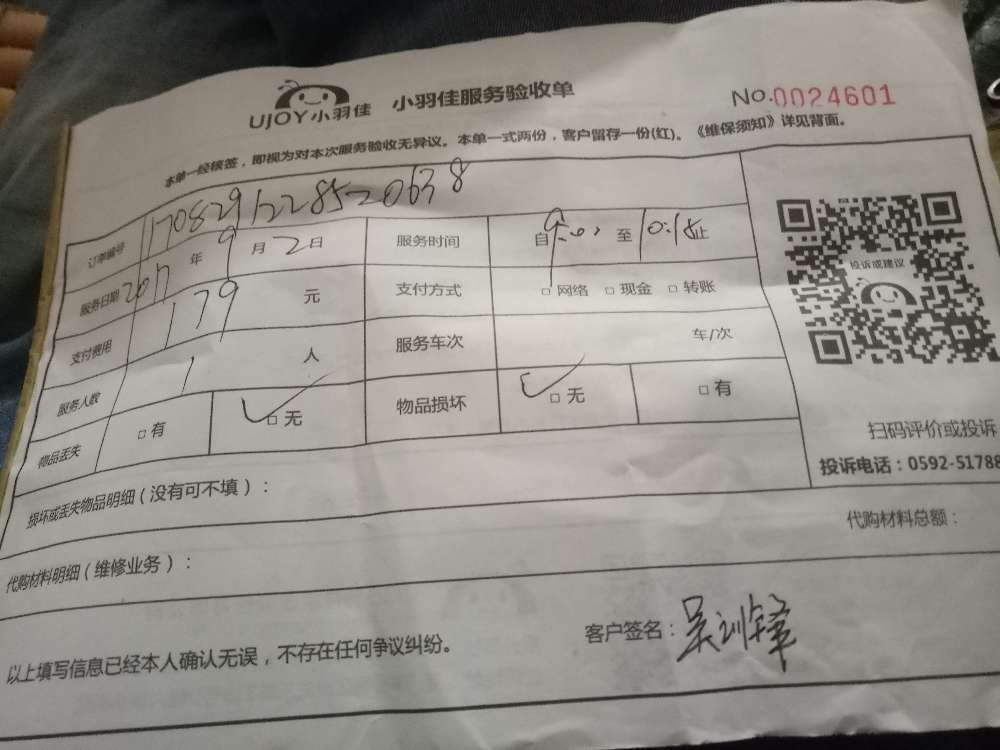 UJOY小羽佳 小羽佳服务验收单 NO.0024601
本单一经核签，即视为对本次服务验收无异议。本单一式两份，客户留存一份(红)。《维保须知》详见背面。
订单编号 1708291228520638
服务日期 2017年9月2日 服务时间 自9:00至10:18止
支付费用 179元 支付方式 □网络 □现金 □转账
服务人数 1人 服务车次 车/次
物品丢失 □有 ✓□无 物品损坏 ✓□无 □有
投诉或建议
扫码评价或投诉
投诉电话：0592-51788
损坏或丢失物品明细（没有可不填）：
代购材料明细（维修业务）： 代购材料总额：
以上填写信息已经本人确认无误，不存在任何争议纠纷。 客户签名：吴训锋